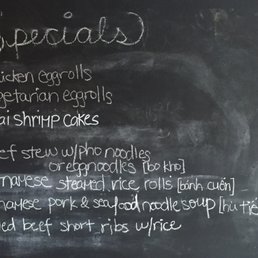 Specials
icken eggrolls
getarian eggrolls
ai shrimp cakes
ef stew w/pho noodles
or eggnoodles [bo kho]
namese steamed rice rolls [bánh cuốn]
namese pork & seafood noodle soup [hủ tiế
ed beef short ribs w/rice